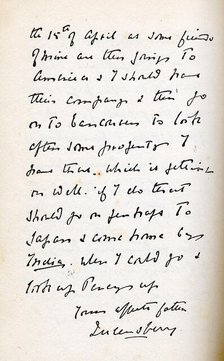 the 15th of April as some friends
of mine are then going to
America & I should have
their company & then go
on to Vancouver to look
after some property I
have there. which is getting
on well. if I do that
should go on perhaps to
Japan & come home by
India. when I could go &
look up Percy up
Your affecte father
Queensberry